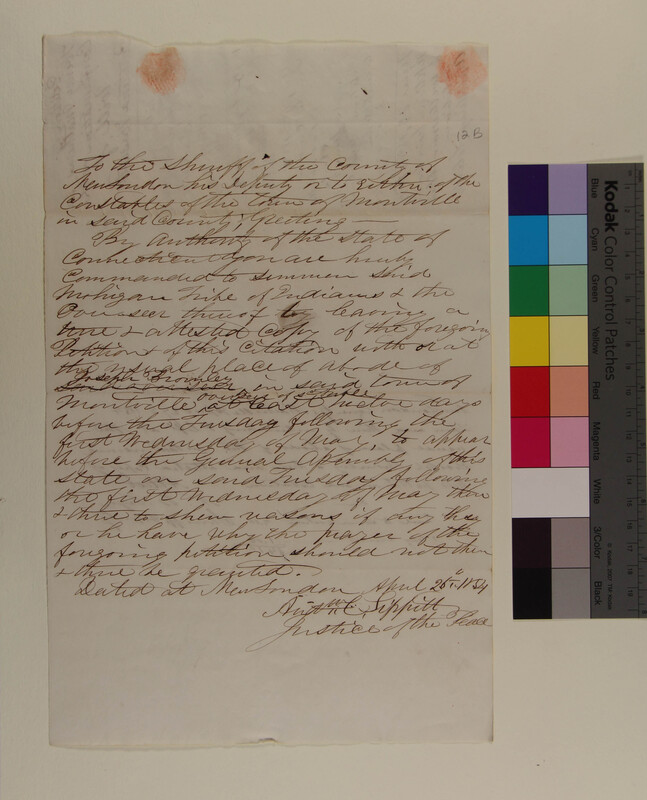 12 B
To the Sheriff of the County of
New London his deputy or to Either of the
Constables of the town of Montville
in said County, Greeting —
By Authority of the State of
Connecticut you are hereby
Commanded to summon said
Mohegan Tribe of Indians & the
Overseer thereof by leaving a
true & attested Copy of the foregoing
Petition & of this Citation with or at
the usual place of abode of
Joseph in said town of
overseer of s tribe
Montville at least twelve days
before the Tuesday following the
first Wednesday of May, to appear
before the General Assembly of this
State on said Tuesday following
the first Wednesday of May then
& there to shew reasons if any they
or he have why the prayer of the
foregoing petition should not then
& there be granted.
Dated at New London April 26th 1854
C. Tippitt
Justice of the Peace
Kodak Color Control Patches
Blue
Cyan
Green
Yellow
Red
Magenta
White
3/Color
Black